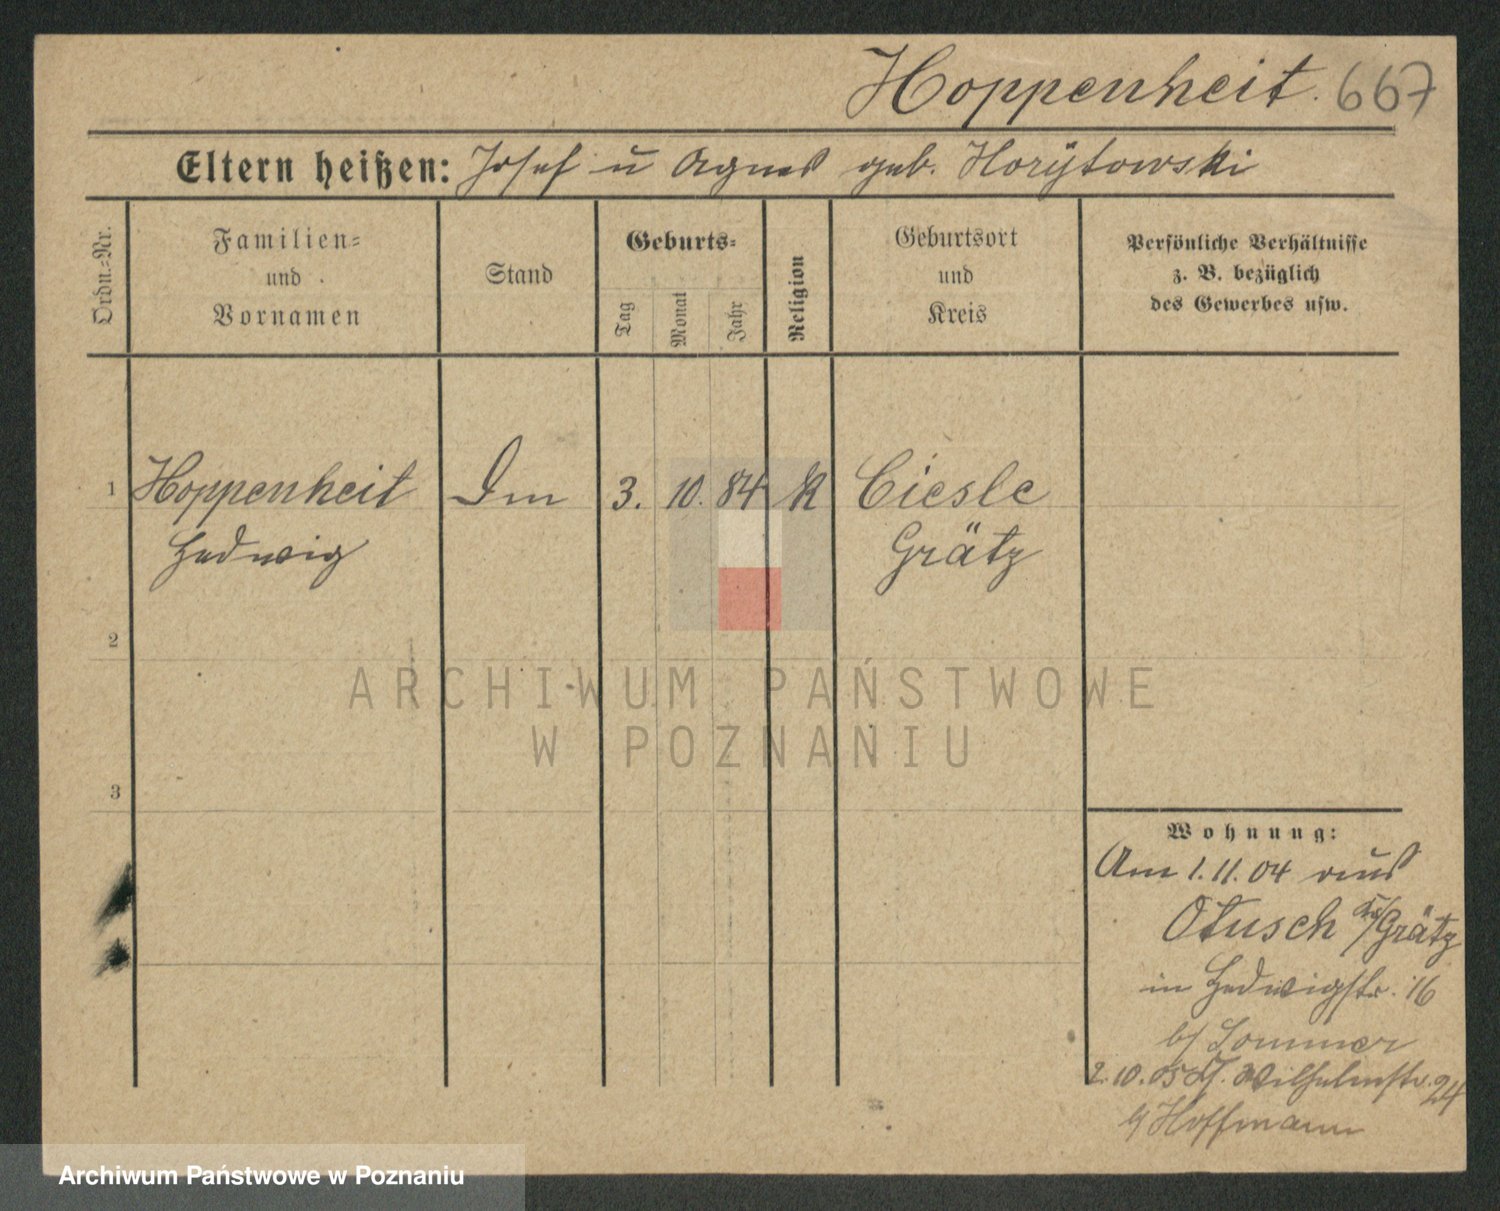 Hoppenheit. 667
Eltern heißen: Josef u Agnes geb. Horÿtowski
Ordn.-Nr.
Familien-
und
Vornamen
Stand
Geburts-
Tag
Monat
Jahr
Religion
Geburtsort
und
Kreis
Persönliche Verhältnisse
z. B. bezüglich
des Gewerbes usw.
1 Hoppenheit Dm 3. 10. 84 k Ciesle
Hedwig Grätz
2
3
ARCHIWUM PAŃSTWOWE
W POZNANIU
Wohnung:
Am 1. 11. 04 aus
Otusch Kr/Grätz
in Hedwigstr. 16
b/ Sommer
2. 10. 05 Wilhelmstr. 24
b/ Hoffmann
Archiwum Państwowe w Poznaniu